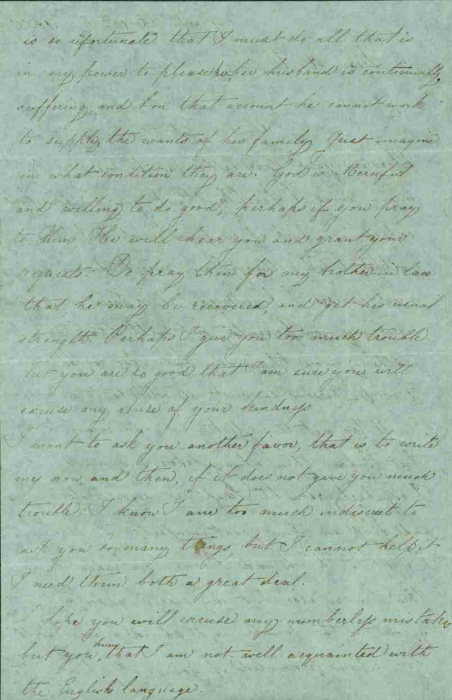 is so ifortunate that I must do all that is
in my power to please her her husband is continually
suffering and on that account he cannot work
to supply the wants of his family Just imagine
in what condition they are. God is Merciful
and willing to do good, perhaps if you pray
to Him He will hear you and grant your
requests. Do pray then for my brother in law
that he may be recovered, and get his usual
strength. Perhaps I give you too much trouble
but you are so good that I am sure you will
excuse my abuse of your kindness
I want to ask you another favor, that is to write
my now and then, if it does not give you much
trouble. I know I am too much indiscret to
ask you so many things, but I cannot help it
I need them both a great deal.
I hope you will excuse my numberless mistakes
but you know that I am not well acquainted with
the English language.